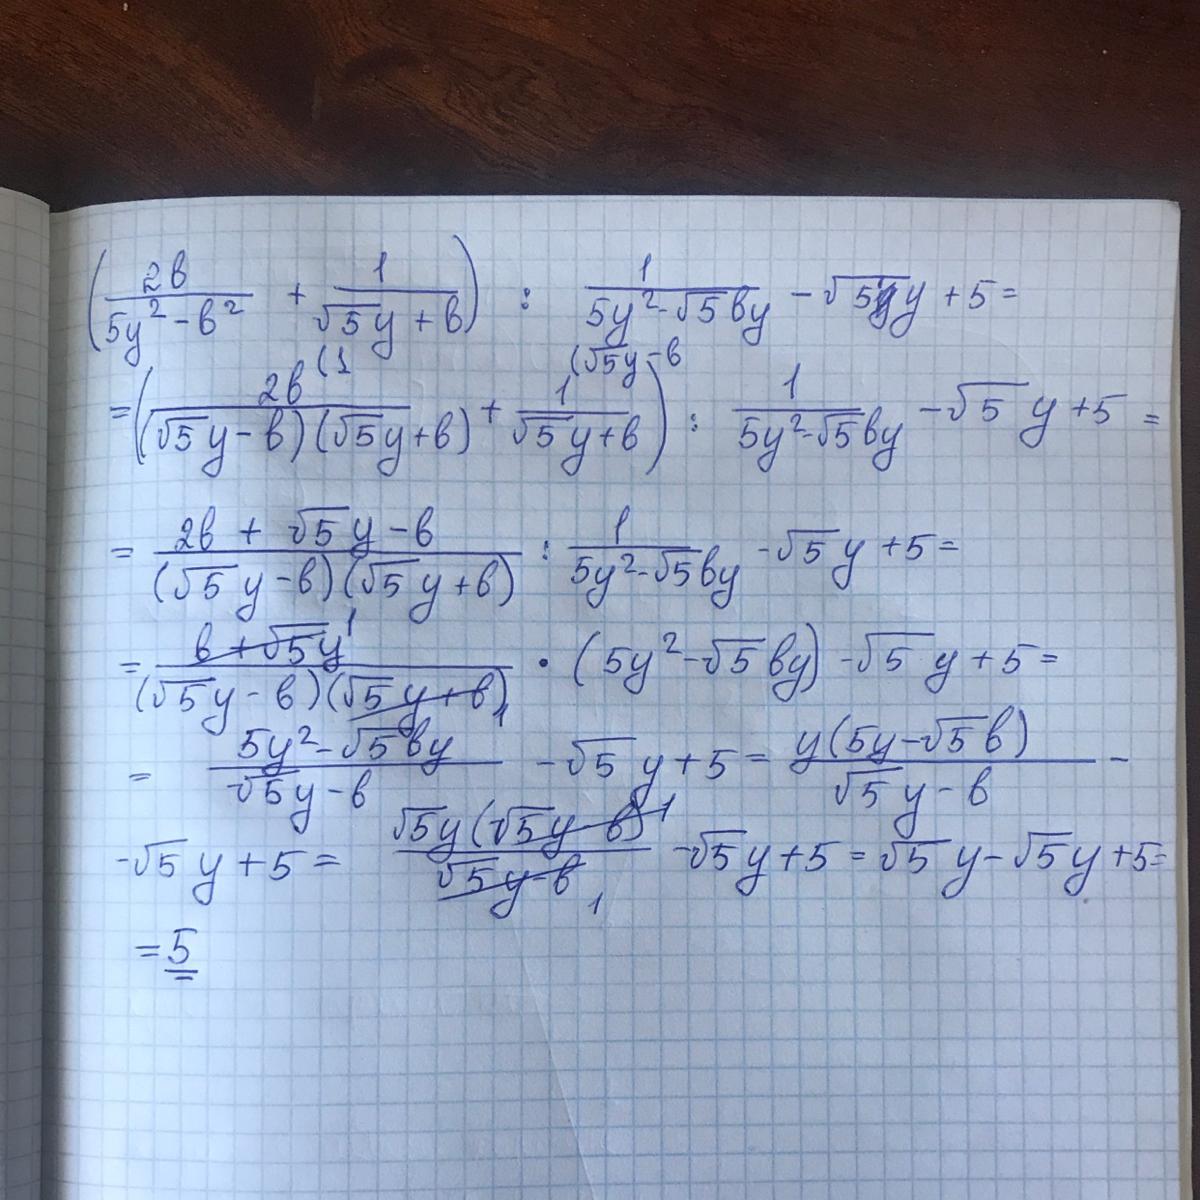 (2b/(5y² - b²) + 1/(√5y + b)) : 1/(5y² - √5by) - √5y + 5 =
(1 (√5y - b
= (2b/((√5y - b)(√5y + b)) + 1/(√5y + b)) : 1/(5y² - √5by) - √5y + 5 =
= (2b + √5y - b)/((√5y - b)(√5y + b)) : 1/(5y² - √5by) - √5y + 5 =
= (b + √5y)¹/((√5y - b)(√5y + b)₁) · (5y² - √5by) - √5y + 5 =
= (5y² - √5by)/(√5y - b) - √5y + 5 = y(5y - √5b)/(√5y - b) -
- √5y + 5 = √5y(√5y - b)¹/(√5y - b)₁ - √5y + 5 = √5y - √5y + 5 =
= 5